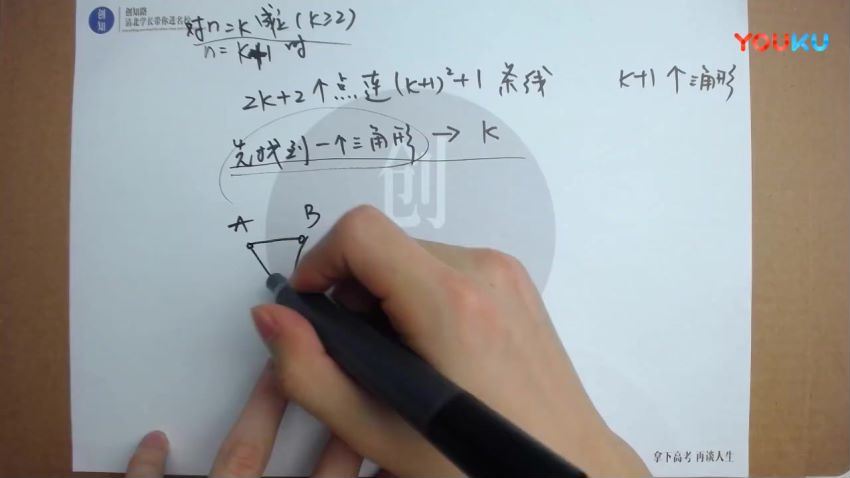 创知路
清北学长带你进名校
创知
YOUKU
对n=k成立(k≥2)
n=k+1时
2k+2个点连(k+1)²+1条线 k+1个三角形
先找到一个三角形→k
创
A B
拿下高考 再谈人生